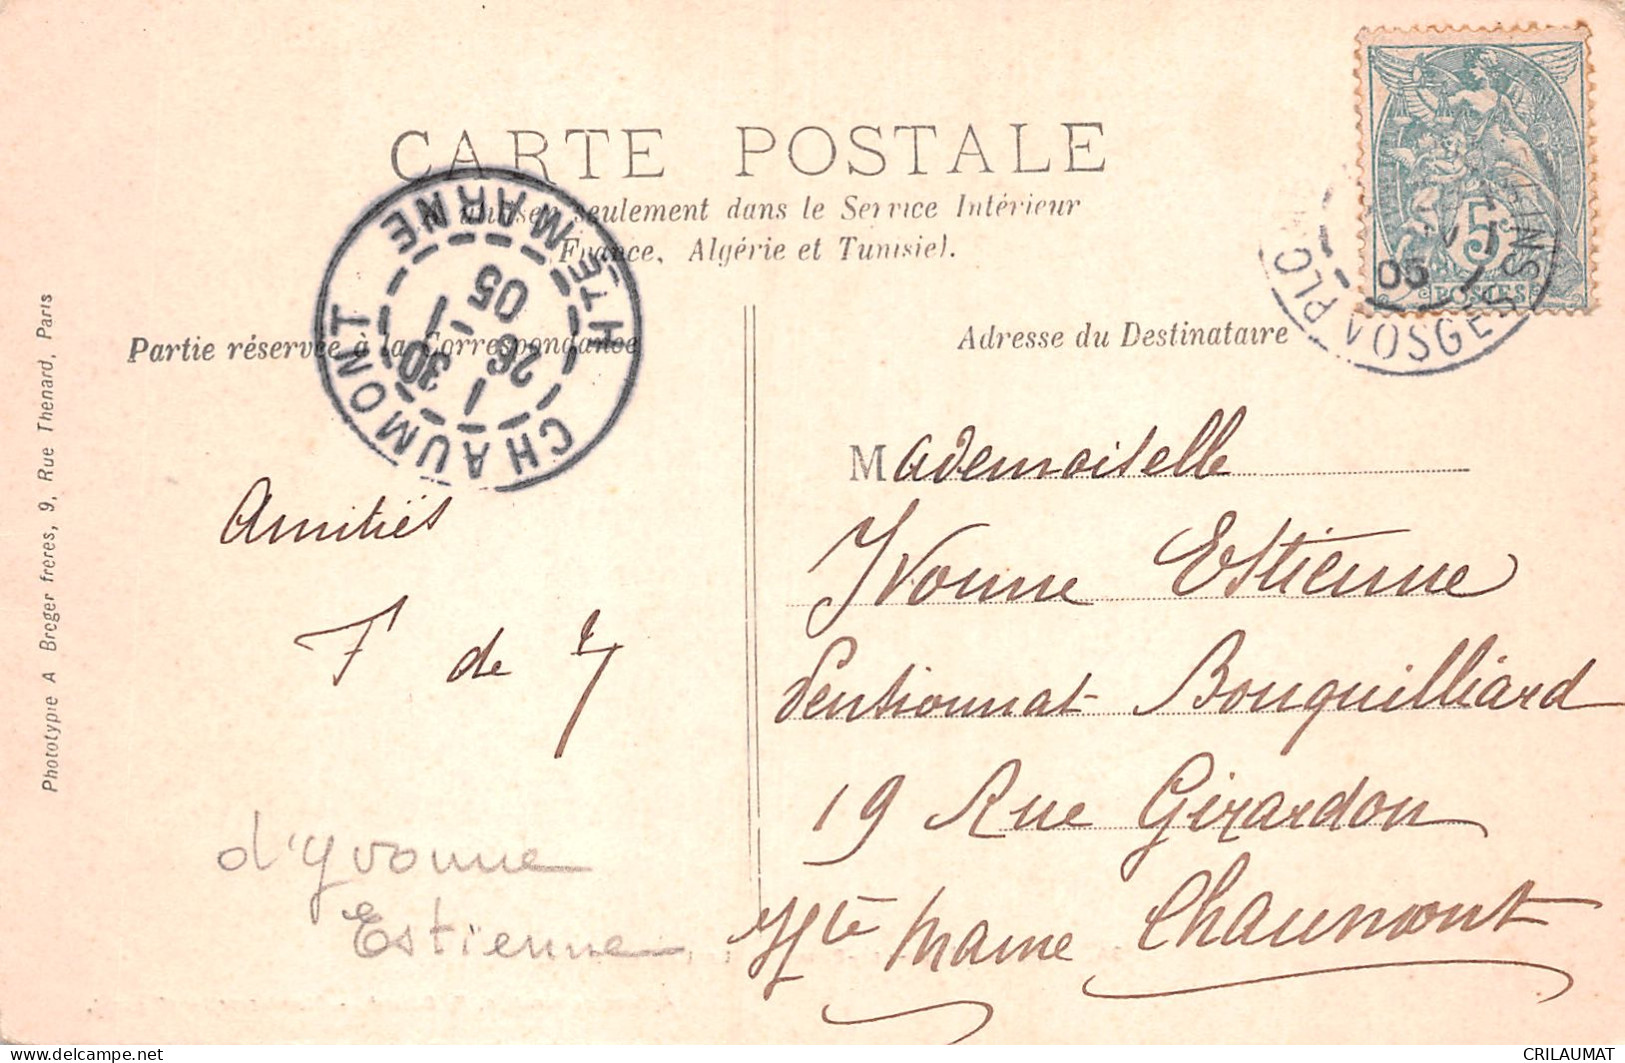 CARTE POSTALE
utiliser seulement dans le Service Intérieur
France, Algérie et Tunisie).
CHAUMONT
HTE-MARNE
30
26 -1
05
05
VOSGES
5
POSTES
Partie réservée à la Correspondance
Adresse du Destinataire
Phototypie A Breger freres, 9, Rue Thenard, Paris
Amitiés
F de
d'Yvonne
Estienne
Mademoiselle
Yvonne Estienne
Pensionnat Bouquilliard
19 Rue Girardon
Hte Marne Chaumont
CRILAUMAT
delcampe.net